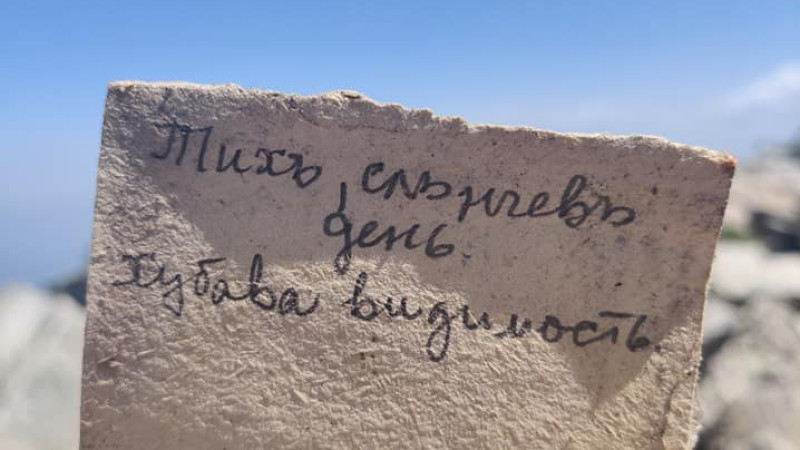 Тихъ, слънчевъ
день.
хубава видимость.